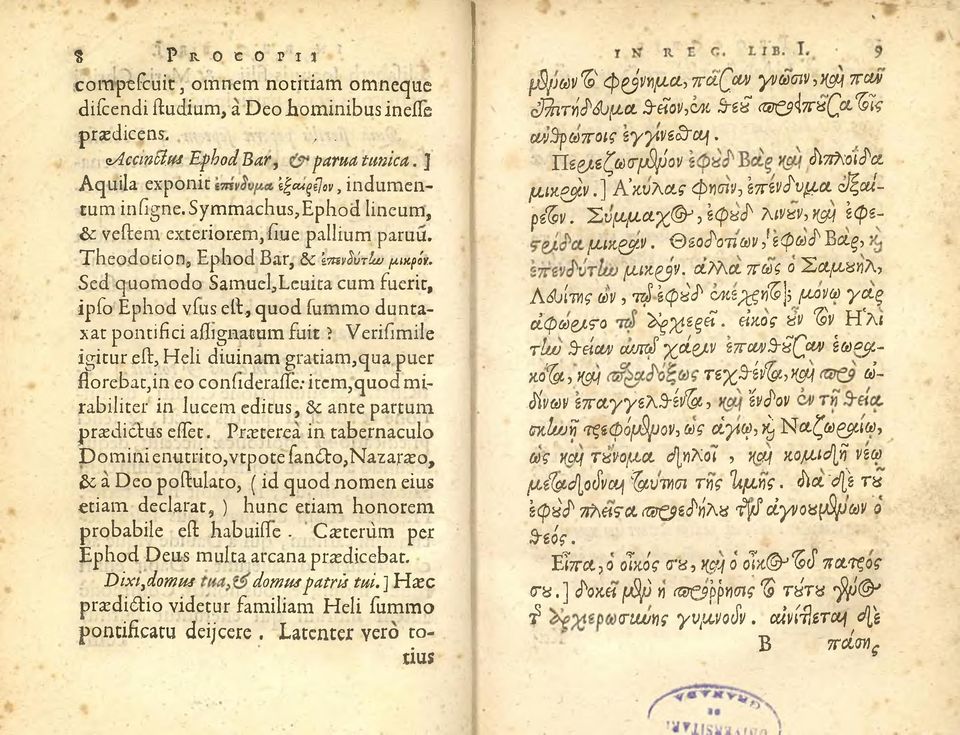 8 PROCOPII
compeſcuit, omnem notitiam omneque
diſcendi ſtudium, à Deo hominibus ineſſe
prædicens.
Accinctus Ephod Bar, & parua tunica. ]
Aquila exponit ἐπένδυμα ἐξαίρεῖον, indumen-
tum inſigne. Symmachus, Ephod lineum,
& veſtem exteriorem, ſiue pallium paruũ.
Theodotion, Ephod Bar, & ἐπενδύτην μικρόν.
Sed quomodo Samuel, Leuita cum fuerit,
ipſo Ephod vſus eſt, quod ſummo dunta-
xat pontifici aſſignatum fuit? Veriſimile
igitur eſt, Heli diuinam gratiam, qua puer
florebat, in eo conſideraſſe: item, quod mi-
rabiliter in lucem editus, & ante partum
prædictus eſſet. Prætereà in tabernaculo
Domini enutrito, vtpote ſancto, Nazaræo,
& à Deo poſtulato, ( id quod nomen eius
etiam declarat, ) hunc etiam honorem
probabile eſt habuiſſe. Cæterùm per
Ephod Deus multa arcana prædicebat.
Dixi, domus tua, & domus patris tui. ] Hæc
prædictio videtur familiam Heli ſummo
pontificatu deijcere. Latenter verò to-
tius
IN REG. LIB. I. 9
μύων τὸ φρόνημα, πᾶσαν γνῶσιν, καὶ πᾶν
ἐπιτήδευμα θεῖον, ἐκ θεοῦ προσποῦσα τοῖς
ἀνθρώποις ἐγγίνεσθαι.
Περιεζωσμένον ἐφοὺδ Βὰρ καὶ διπλοΐδα
μικράν. ] Ἀκύλας φησὶν, ἐπένδυμα ἐξαί-
ρετον. Σύμμαχος, ἐφοὺδ λινοῦν, καὶ ἐφε-
στρίδα μικράν. Θεοδοτίων, ἐφοὺδ Βὰρ, καὶ
ἐπενδύτην μικρόν. ἀλλὰ πῶς ὁ Σαμουὴλ,
Λευίτης ὢν, τῷ ἐφοὺδ ἐκέχρητο; μόνῳ γὰρ
ἀφώριστο τῷ ἀρχιερεῖ. εἰκὸς οὖν τὸν Ἡλὶ
τὴν θείαν αὐτῷ χάριν ἐπανθοῦσαν ἑωρα-
κότα, καὶ παραδόξως τεχθέντα, καὶ πρὸ ὠ-
δίνων ἐπαγγελθέντα, καὶ ἔνδον ἐν τῇ θείᾳ
σκηνῇ τρεφόμενον, ὡς ἁγίῳ, καὶ Ναζωραίῳ,
ὡς καὶ τοὔνομα δηλοῖ, καὶ κομιδῇ νέῳ
μεταδοῦναι ταύτησι τῆς τιμῆς. διὰ δὲ τοῦ
ἐφοὺδ πλεῖστα προεδήλου τῶν ἀγνοουμένων ὁ
θεός.
Εἶπα, ὁ οἶκός σου, καὶ ὁ οἶκος τοῦ πατρός
σου. ] δοκεῖ μὲν ἡ πρόρρησις τὸ τούτου γένος
τῆς ἀρχιερωσύνης γυμνοῦν. αἰνίττεται δὲ
B πάσης
GRANADA
DE